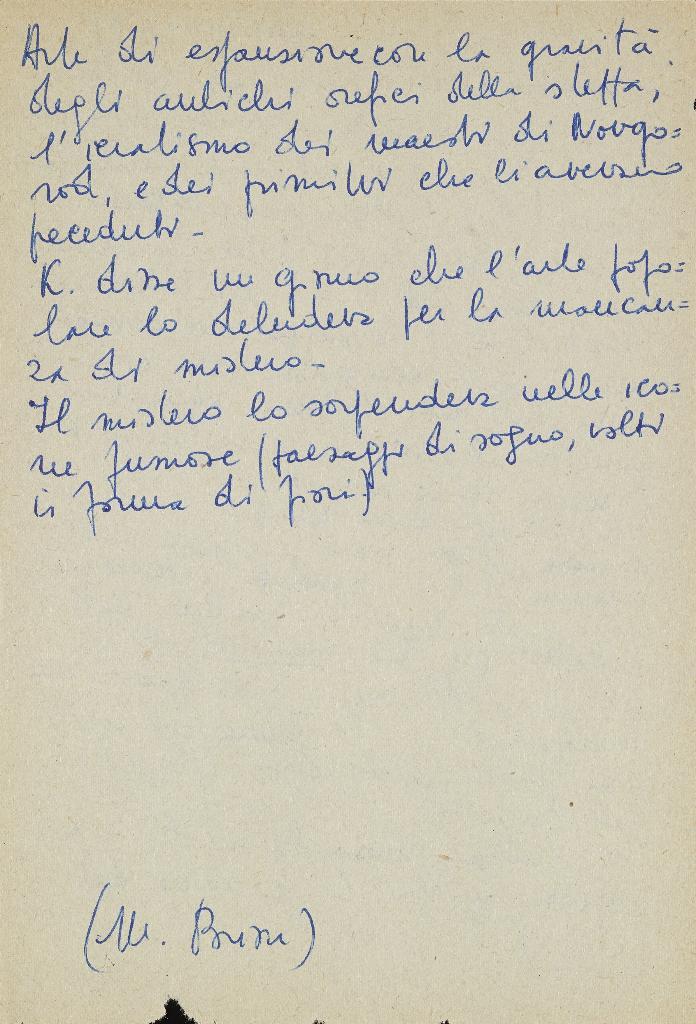 Arte di espansione con la gravità
degli antichi orefici della steppa,
l'ieratismo dei maestri di Novgo=
rod, e dei primitivi che li avevano
preceduti -
K. disse un giorno che l'arte popo=
lare lo deludeva per la mancan=
za di mistero -
Il mistero lo sorprendeva nelle ico=
ne fumose (paesaggi di sogno, volti
in forma di fiori)
(M. Brion)